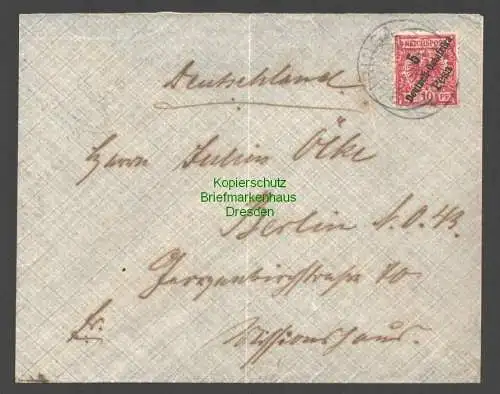 REICHSPOST
5
Deutsch-Ostafrika
Pesa
10 10
Deutschland.
Herrn Julius Ölke
Kopierschutz
Briefmarkenhaus
Dresden
Berlin N.O. 43.
Georgenkirchstraße 70
fr. Missionshaus.